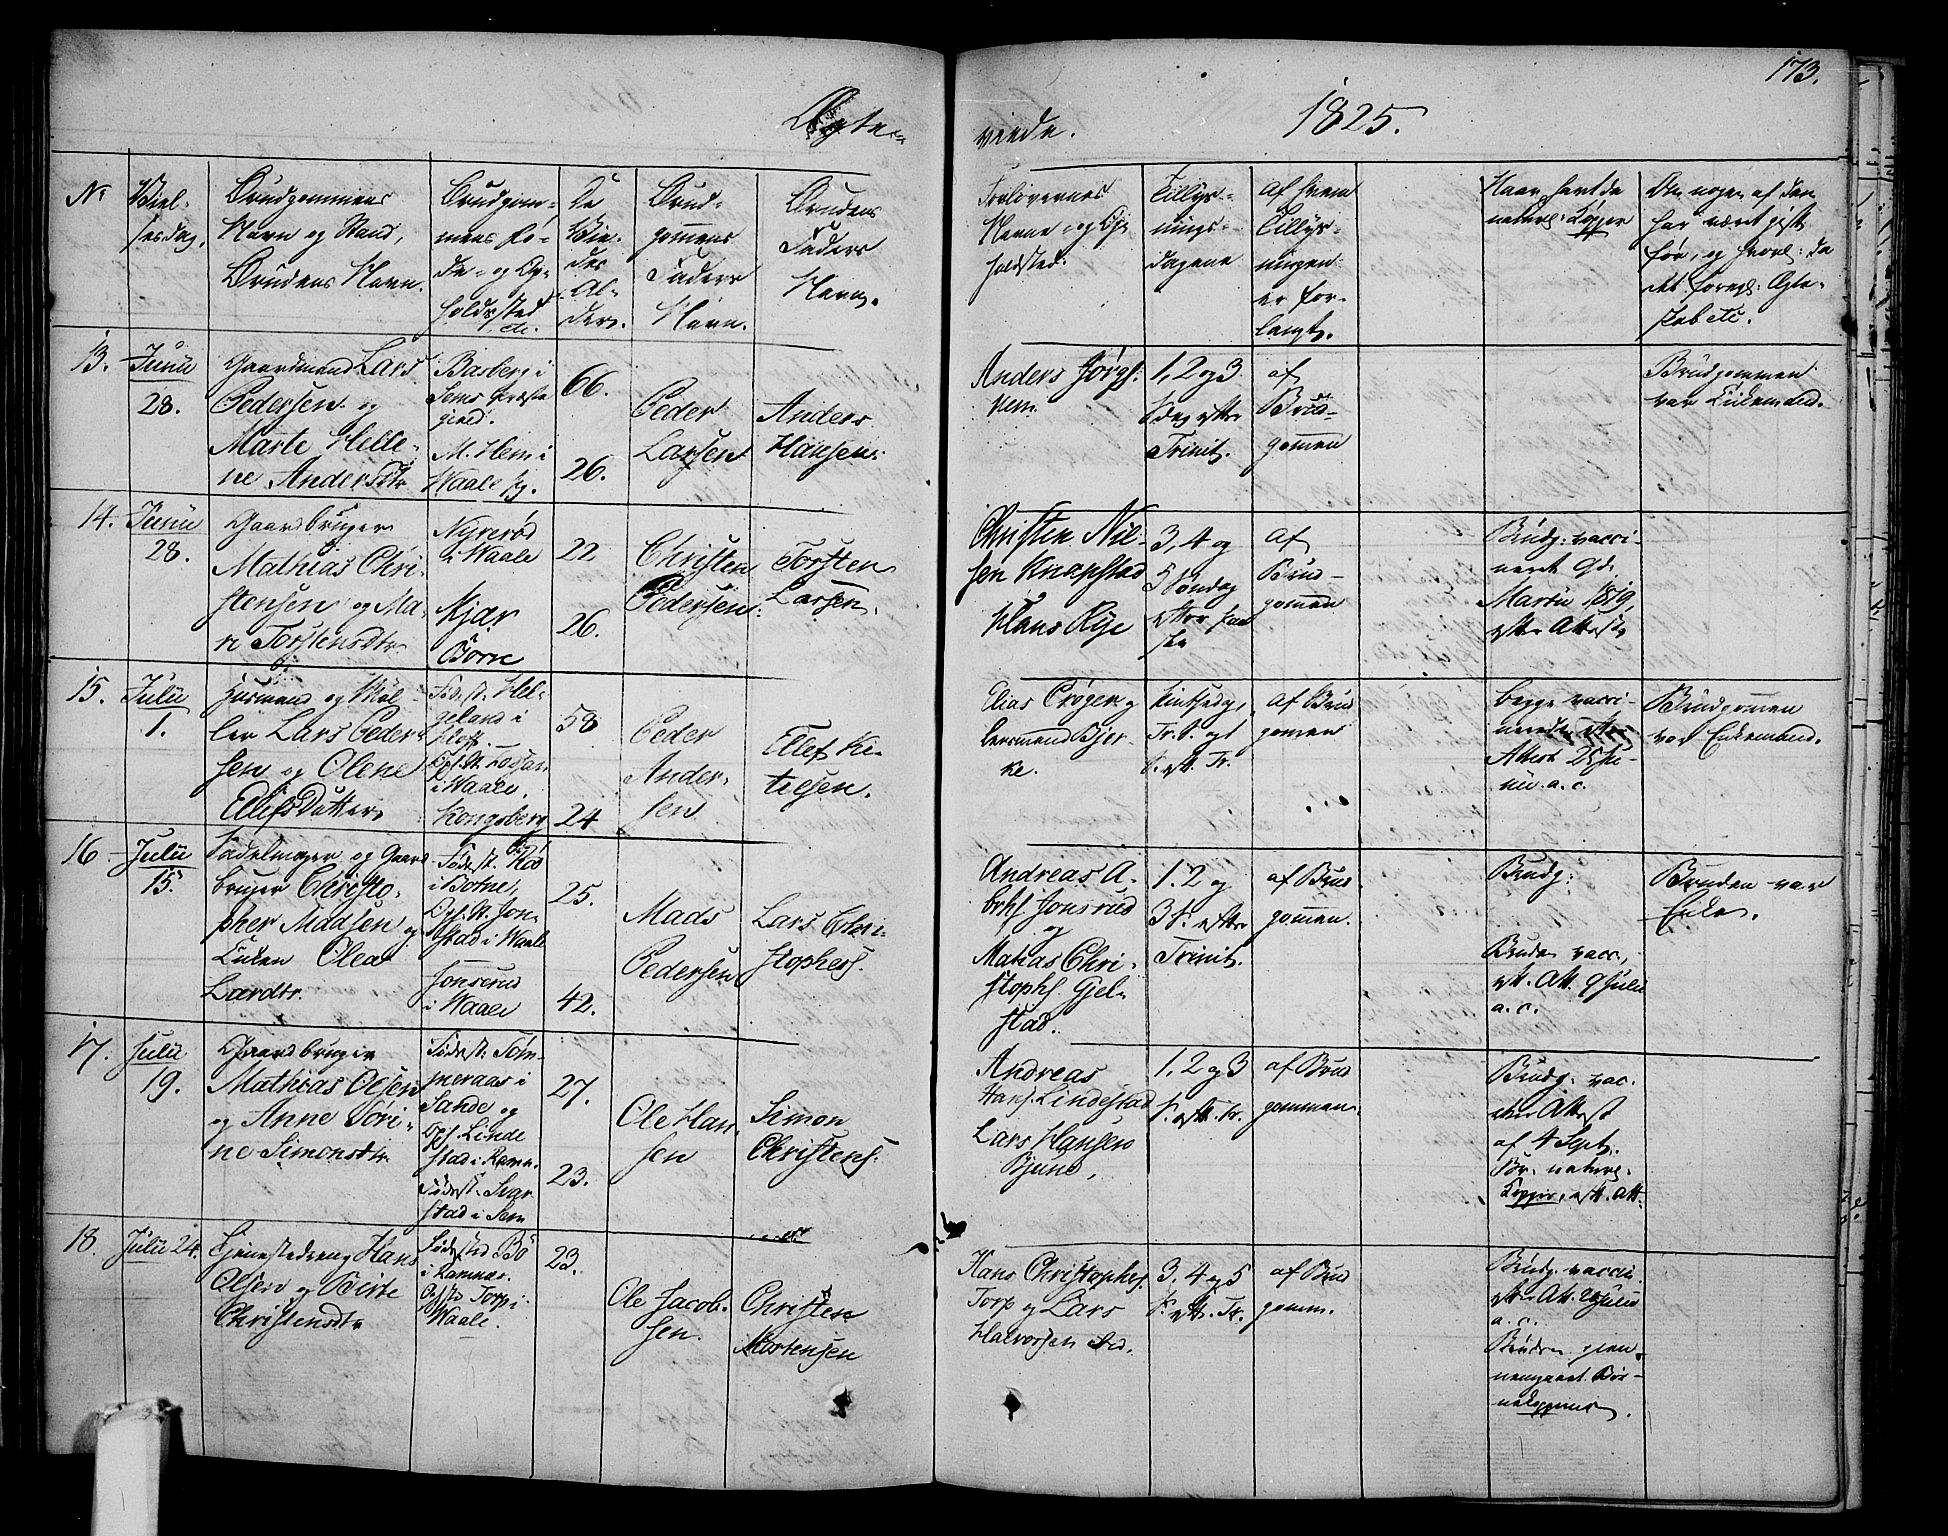 173.
Ægte-
viede.
1825.
No
Viel-
sesdag.
Brudgommens
Navn og Stand,
Brudens Navn.
Brudgom-
mens Fø-
de- og Op-
holdssted
etc.
De
Vie-
des
Al-
der.
Brud-
gomens
Faders
Navn.
Brudens
Faders
Navn.
Forlovernes
Navne og Op-
holdsted.
Tillys-
nings-
dagene
af hvem
Tillys-
ningen
er for-
langt.
Havt de
naturl: Kopper
Om nogen af dem
har været gift
før, og hvorl: da
det foreg: Ægte-
skab etc.
13.
Junii
28.
Gaardmand Lars
Pedersen og
Marte Helle-
ne Andersdtr
Basberg i
Sems Præste
gield.
M. Hem i
Waale Pg.
66
26.
Peder
Larsen
Anders
Hansen.
Anders Jørgs:
Hem
1, 2 og 3
Sdag efter
Trinit.
af
Brud-
gomen
Brudgommen
var Enkemand.
14.
Junii
28.
Gaardbruger
Mathias Chri-
stensen og Ma-
ri Torstensdtr
Nyrerød
i Waale
Kjær
Borre
22
26.
Christen
Pedersen.
Torsten
Larsen.
Christen Nil-
sen Knapstad
Hans Rye
3, 4 og
5 Søndag
efter Paa
ske
af
Brud-
gomen
Brudg: vacci-
neret 9de
Martii 1819,
efter Attest
15.
Julii
1.
Huusmand og Møl-
ler Lars Peder-
sen og Olene
Ellefsdatter
Fødest. Hel-
geland i
Hoff.
i Waale.
Kongsberg
58
24
Peder
Ander-
sen
Ellef Ki-
tilsen.
Elias Crøger og
Lensmand Bjer-
ke.
Pintsedg,
Tr. S. og 1
S. eft. Tr.
af Brud
gomen
begge vacci-
nerede efter
Attest 25 Ju-
nii a. c.
Brudgomen
var Enkemand.
16
Julii
15.
Sadelmager og Gaard
bruger Christo-
pher Madsen og
Enken Olea
Larsdtr.
Fødest. Rød
i Botne,
Oph.st. Jon-
stad i Waale
Jonserud
i Waale
25.
42.
Mads
Pedersen
Lars Chri-
stophers.
Andreas A-
brhs Jonsrud
og
Matias Chri-
stophs. Gjel-
stad.
1. 2 og
3 S. efter
Trinit.
af Brud
gommen.
Brudg:
Bruden vacc,
eft. Att. 9 Julii
a. c.
Bruden var
Enke.
17.
Julii
19.
Gaardbruger
Mathias Olsen
og Anne Søri-
ne Simonsdtr
Fødest: Tøm-
meraas i
Sande og
Oph. Linde
stad i Ramn.
Fødest: Svar
stad i Sem
27.
23.
Ole Han-
sen
Simon
Christens:
Andreas
Hans. Lindestad
Lars Hansen
Bjune,
1, 2 og 3
S. eft. Tr.
af Brud
gommen.
Brudg: vac.
efter Attest
af 4 Sept.
Br: naturl.
Kopper, eft. Att.
18.
Julii 24.
Tjenestedreng Hans
Olsen og Berte
Christensdtr
Fødested Bö
i Ramnæs.
Ophst. Torp i
Waale.
23.
Ole Jacob-
sen.
Christen
Mortensen
Hans Christophs.
Torp og Lars
Halvorsen ibd.
3. 4 og 5
S. eft. Tr.
af Brud
gomm.
Brudg. vaccin.
efter Att. Julii
a. c.
Bruden gien-
nemgaaet Bør-
nekopperne.